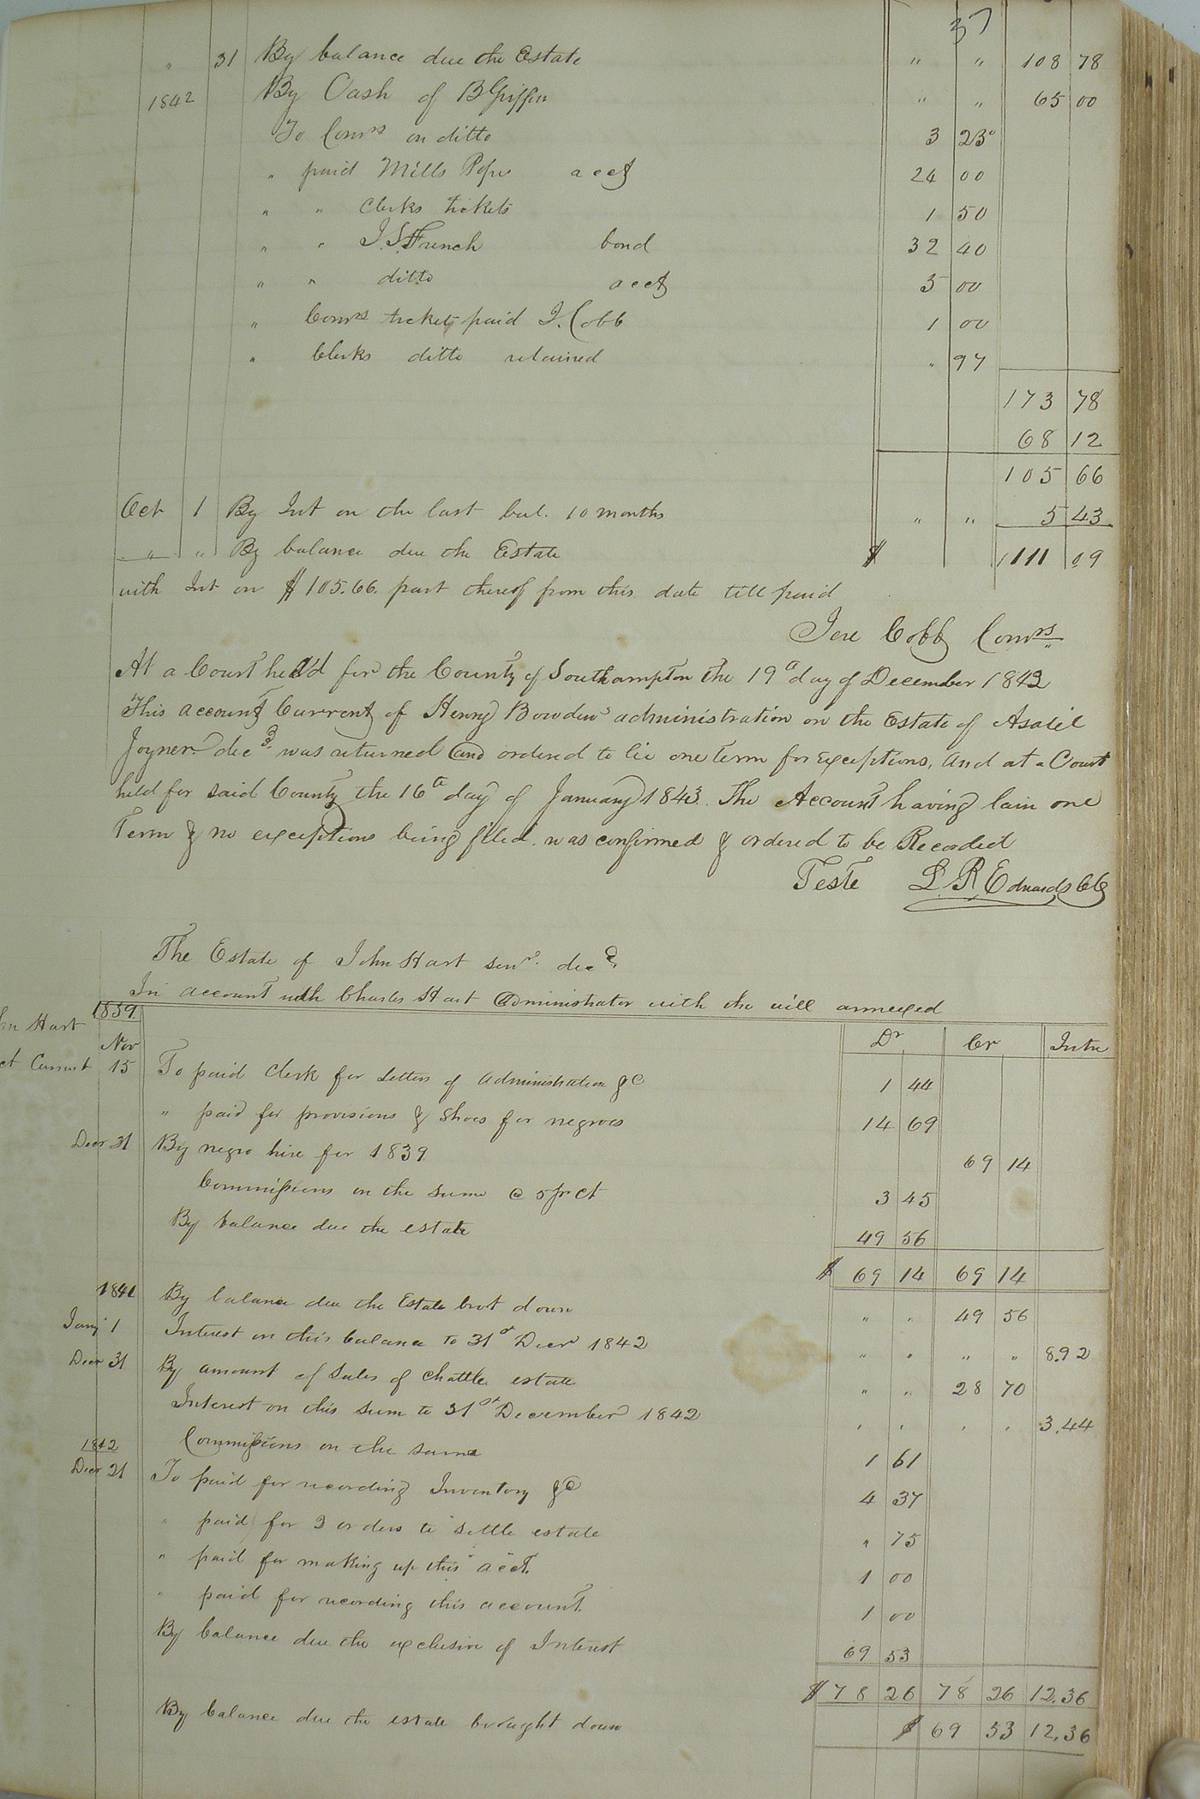 37
" 31 By balance due the Estate " " 108 78
1842 By Cash of B Griffin " " 65 00
To Comrs on ditto 3 23
" paid Mills Pope acct 24 00
" " Clerks tickets 1 50
" " J. S. French bond 32 40
" " ditto acct 5 00
" Comrs tickets paid J. Cobb 1 00
" Clerks ditto retained " 97
173 78
68 12
105 66
Oct 1 By Int on the last bal. 10 months " " 5 43
" " By balance due the Estate $ 111 09
with Int on $105.66 part thereof from this date till paid
Jere Cobb Comrs
At a Court held for the County of Southampton the 19th day of December 1842
This account Current of Henry Bowden's administration on the Estate of Asael
Joyner decd was returned and ordered to lie one term for exceptions, and at a Court
held for said County the 16th day of January 1843. The Account having lain one
Term & no exceptions being filed. was confirmed & ordered to be Recorded
Teste L R Edwards Clk
The Estate of John Hart senr. decd.
In account with Charles Hart Administrator with the will annexed
hn Hart
ct Current
1839 Dr Cr Intr
Nov
15 To paid Clerk for Letters of administration &c 1 44
" paid for provisions & Shoes for negroes 14 69
Decr 31 By negro hire for 1839 69 14
Commissions on the same @ 5 pr ct 3 45
By balance due the estate 49 56
$ 69 14 69 14
1841 By balance due the Estate brot down " " 49 56
Jany 1 Interest on this balance to 31st Decr 1842 " " " " 8.92
Decr 31 By amount of sales of Chattle estate " " 28 70
Interest on this sum to 31st December 1842 " " " " 3.44
1842 Commissions on the same 1 61
Decr 21 To paid for recording Inventory &c 4 37
" paid for 3 orders to settle estate " 75
" paid for making up this acct. 1 00
" paid for recording this account. 1 00
By balance due the exclusive of Interest 69 53
$ 78 26 78 26 12.36
By balance due the estate brought down $ 69 53 12.36